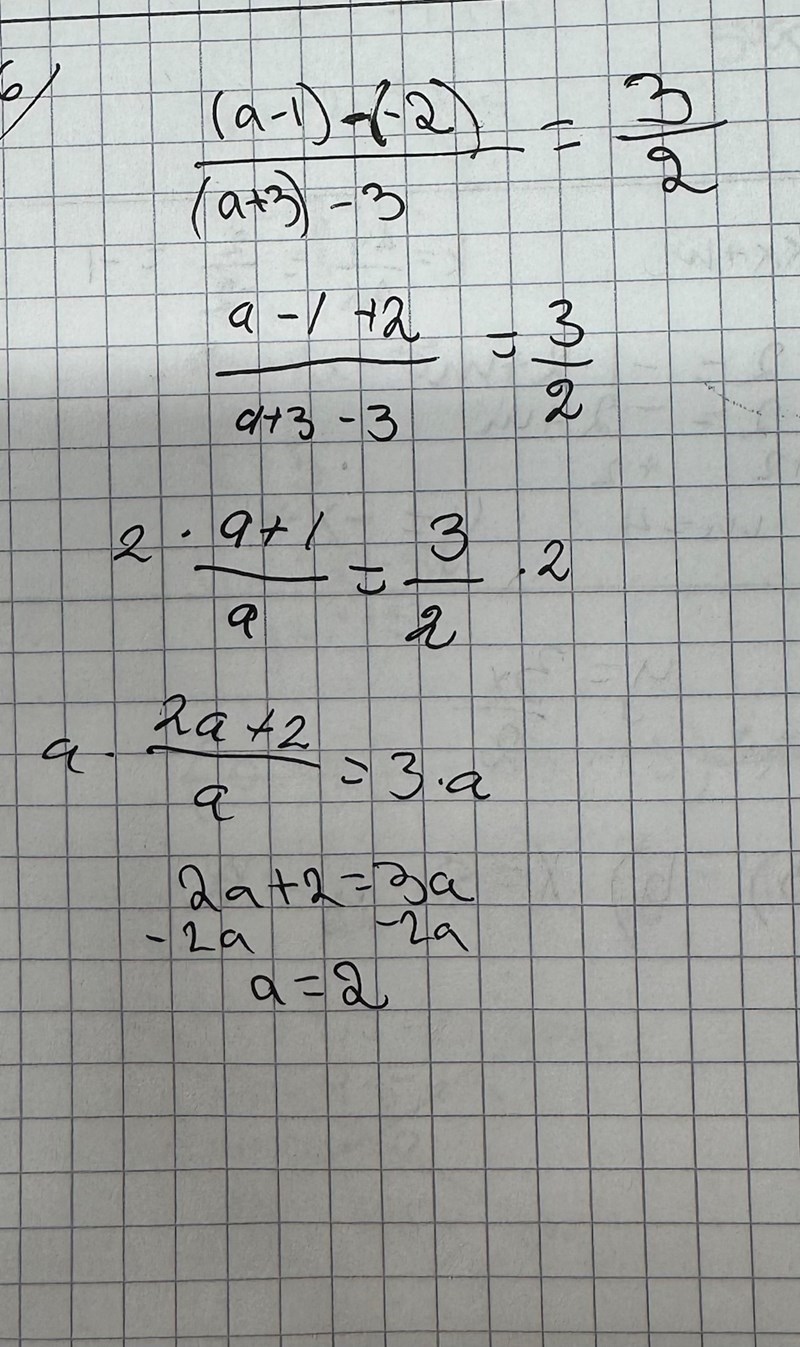 6/
(a-1) - (-2) / (a+3) - 3 = 3/2
a - 1 + 2 / a+3 - 3 = 3/2
2 · a+1 / a = 3/2 · 2
a · 2a+2 / a = 3 · a
2a+2 = 3a
-2a -2a
a = 2